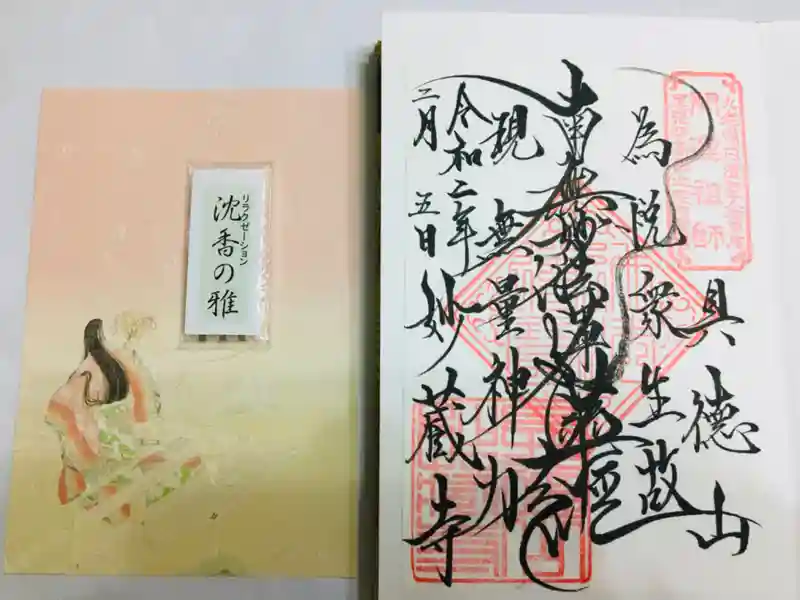 沈香の雅
リラクゼーション
具徳山
為悦衆生故
南無妙法蓮華経
現無量神力
令和二年
二月五日
妙蔵寺